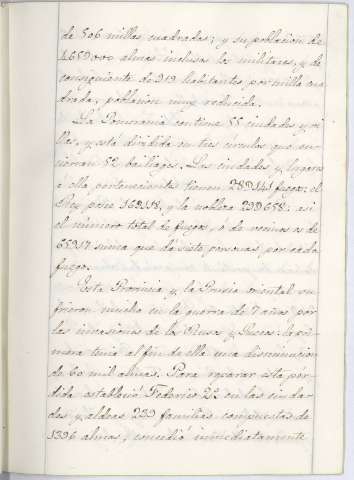 de 506 millas cuadradas; y su poblacion de
465.000 almas inclusos los militares, y de
consiguiente de 919 habitantes por milla cua
drada, poblacion muy reducida.
La Pomerania contiene 55 ciudades y vi
llas, y está dividida en tres circulos que en-
cierran 52 bailiages. Las ciudades y lugares
á ella pertenecientes tienen 289.141 fuegos: el
Rey posee 169.118, y la nobleza 299.658: asi
el número total de fuegos, ó de vecinos es de
65.917 suma que dá siete personas por cada
fuego.
Esta Provincia y la Prusia oriental su
frieron mucho en la guerra de 7 años por
las invasiones de los Rusos y Suecos: la pri
mera tenia al fin de ella una disminucion
de 60 mil almas. Para reparar esta per-
dida estableció Federico 2º en las ciuda-
des y aldeas 239 familias compuestas de
1396 almas, concedió inmediatamente